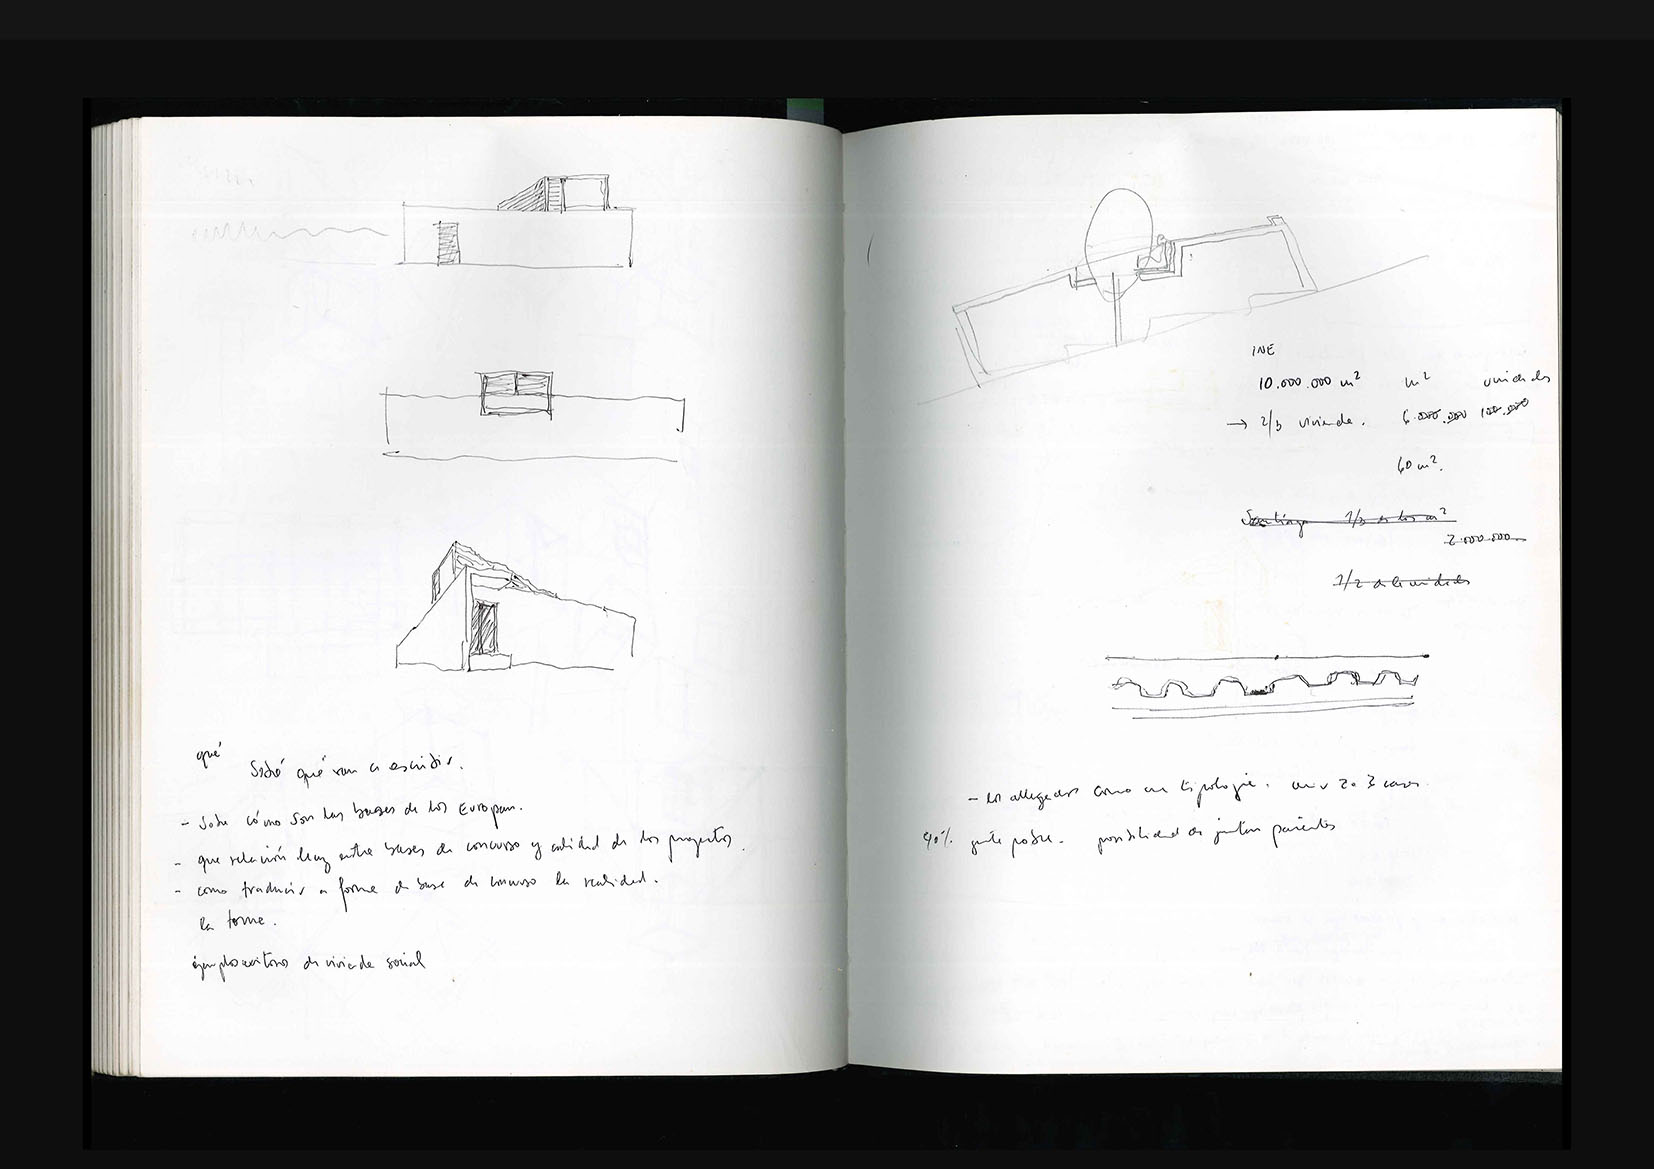 qué
Sobre qué van a escribir.
- Sobre cómo son las bases de los Europan.
- que relación hay entre bases de concurso y calidad de los proyectos.
- como traducir a forma de base de concurso la realidad.
la forma.
de vivienda social
INE
10.000.000 m² m² unidades
→ 2/3 vivienda. 6.000.000 100.000
60 m².
Santiago 1/3 de los m²
2.000.000
1/2 de unidades
- los allegados como una tipología. 2 o 3 casas.
40% gente pobre. posibilidad de juntar parientes